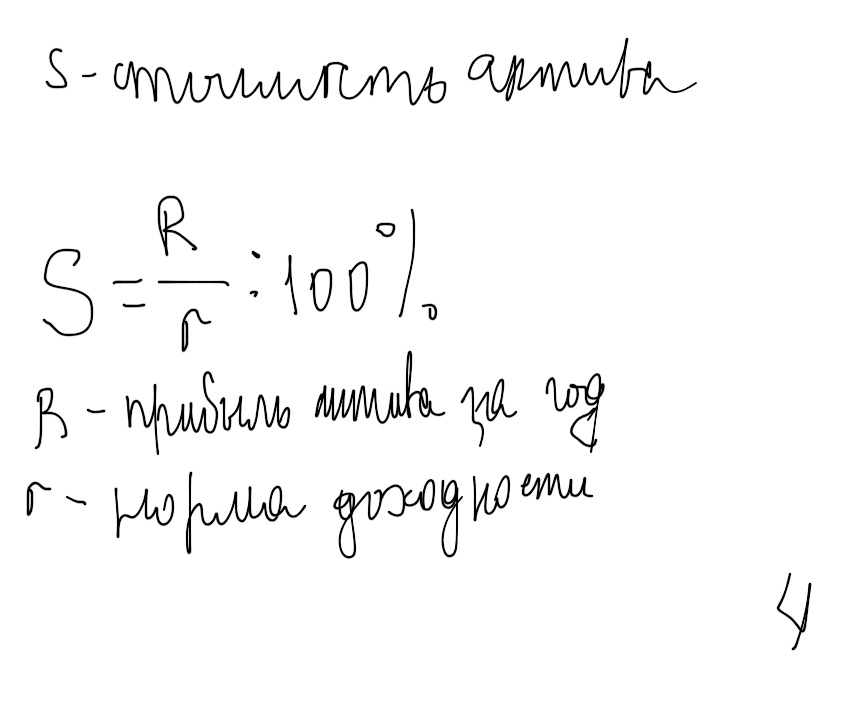 S - стоимость актива
S = R/r : 100%
R - прибыль актива за год
r - норма доходности
4